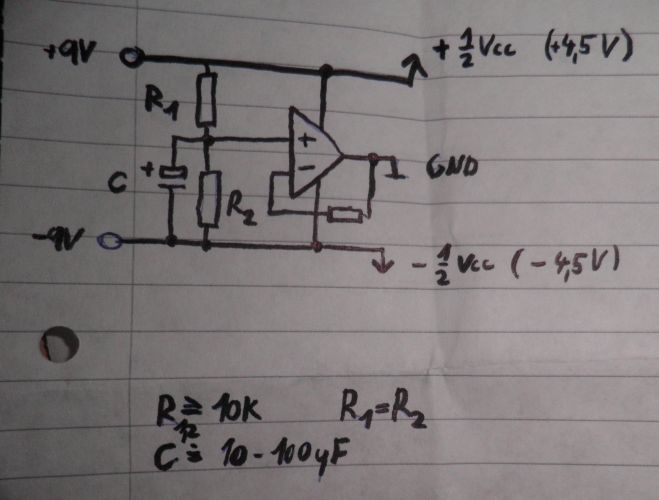 +9V
+½Vcc (+4,5V)
R1
+
+
-
C
GND
R2
-9V
-½Vcc (-4,5V)
R12 ≥ 10K R1=R2
C ≐ 10-100µF